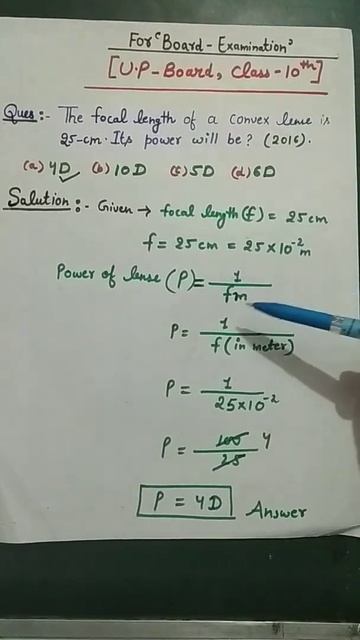 For "Board-Examination"
[U.P-Board, Class-10th]
Ques:- The focal length of a convex lense is
25-cm. Its power will be? (2016).
(a) 4D ✓ (b) 10D (c) 5D (d) 6D
Solution:- Given → focal length (f) = 25 cm
f = 25 cm = 25 × 10⁻² m
Power of lense (P) = 1/fm
P = 1/f (in meter)
P = 1/25×10⁻²
P = 100/25 4
P = 4D Answer